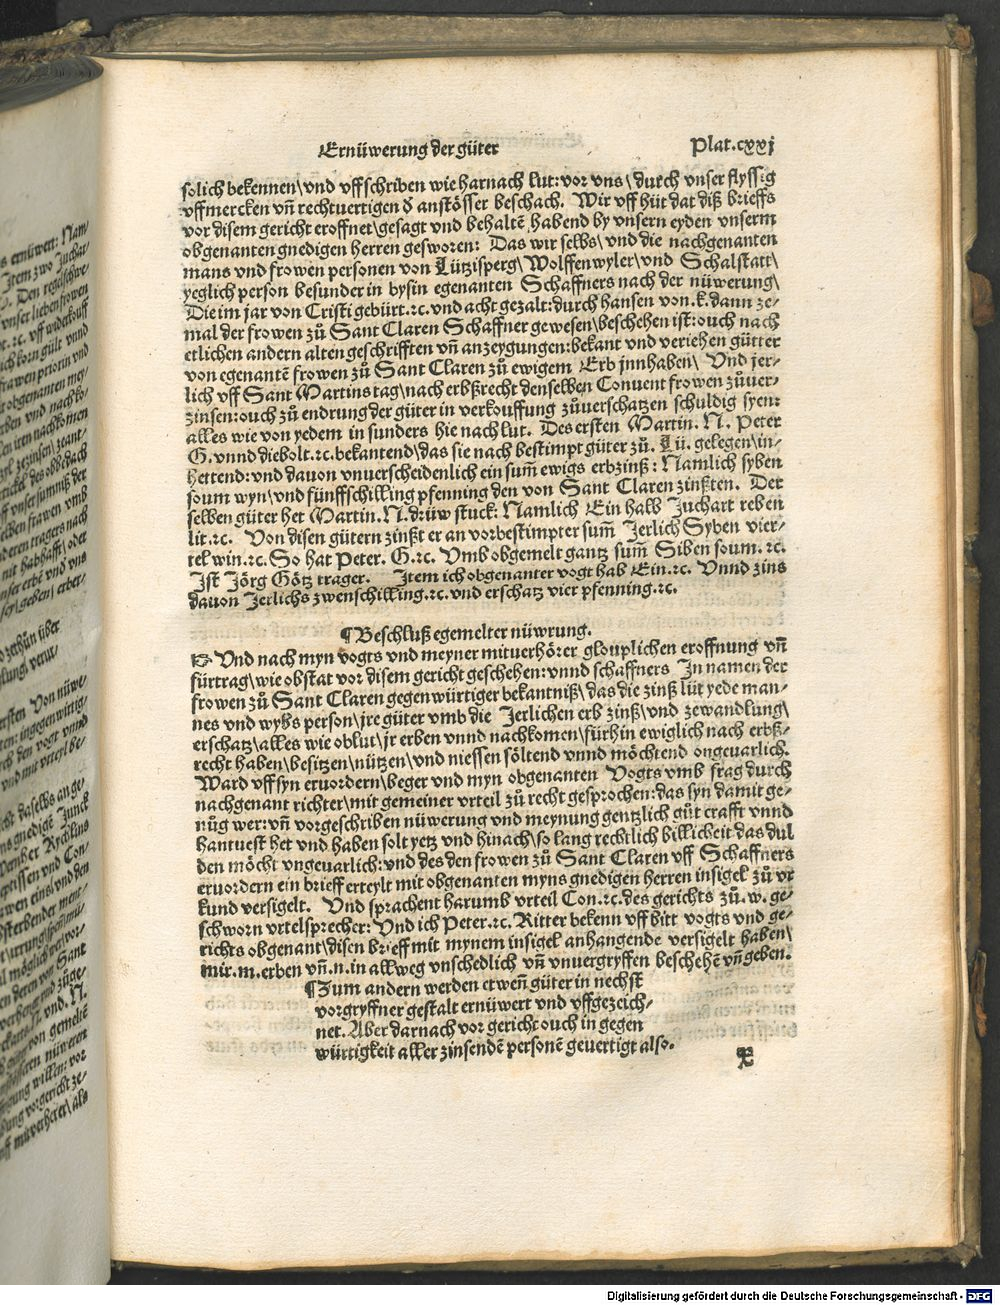 Ernüwerung der güter Plat.cxxj
solich bekennen\vnd vffschriben wie harnach lut:vor vns\durch vnser flyssig
vffmercken vñ rechtuertigen d anstösser beschach. Wir vff hüt dat diß brieffs
vor disem gericht eroffnet\gesagt vnd behaltẽ, habend by vnsern eyden vnserm
obgenanten gnedigen herren gesworen: Das wir selbs\vnd die nachgenanten
mans vnd frowen personen von Lützisperg\Wolffenwyler\vnd Schalstatt\
yeglich person besunder in bysin egenanten Schaffners nach der nüwerung\
Die im jar von Cristi gebürt.ꝛc.vnd acht gezalt:durch hansen von.k.dann ze-
mal der frowen zů Sant Claren Schaffner gewesen\beschehen ist:ouch nach
etlichen andern alten geschrifften vñ anzeygungen:bekant vnd veriehen gütter
von egenantẽ frowen zů Sant Claren zů ewigem Erb jnnhaben\ Vnd jer-
lich vff Sant Martins tag\nach erbßrecht denselben Conuent frowen zůuer-
zinsen:ouch zů endrung der güter in verkouffung zůuerschatzen schuldig syen:
alles wie von yedem in sunders hie nach lut. Des ersten Martin. N. Peter
G.vnnd diebolt.ꝛc.bekantend\das sie nach bestimpt güter zů. Lü. gelegen\in-
hettend:vnd dauon vnuerscheidenlich ein sum̃ ewigs erbzinß: Namlich syben
soum wyn\vnd fünffschilling pfenning den von Sant Claren zinßten. Der
selben güter het Martin.N.drüw stuck: Namlich Ein halb Juchart reben
lit.ꝛc. Von disen gütern zinßt er an vorbestimpter sum̃ Jerlich Syben vier-
tel win.ꝛc.So hat Peter. G.ꝛc. Vmb obgemelt gantz sum̃ Siben soum. ꝛc.
Ist Jörg Götz trager. Item ich obgenanter vogt hab Ein.ꝛc. Vnnd zins
dauon Jerlichs zwenschilling.ꝛc.vnd erschatz vier pfenning.ꝛc.
¶ Beschluß egemelter nüwrung.
Vnd nach myn vogts vnd meyner mituerhörer glouplichen eroffnung vñ
fürtrag\wie obstat vor disem gericht geschehen:vnnd schaffners In namen der
frowen zů Sant Claren gegenwürtiger bekantniß\das die zinß lüt yede man-
nes vnd wybs person\jre güter vmb die Jerlichen erb zinß\vnd zewandlung\
erschatz\alles wie oblut\jr erben vnnd nachkomen\fürhin ewiglich nach erbß-
recht haben\besitzen\nützen\vnd niessen söltend vnnd möchtend ongeuarlich.
Ward vff syn eruordern\beger vnd myn obgenanten Vogts vmb frag durch
nachgenant richter\mit gemeiner vrteil zů recht gesprochen:das syn damit ge-
nůg wer:vñ vorgeschriben nüwerung vnd meynung gentzlich gůt crafft vnnd
hantuest het vnd haben solt yetz vnd hinach\so lang rechtlich billicheit das dul
den möcht vngeuarlich:vnd des den frowen zů Sant Claren vff Schaffners
eruordern ein brieff erteylt mit obgenanten myns gnedigen herren insigel zů vr
kund versigelt. Vnd sprachent harumb vrteil Con.ꝛc.des gerichts zů.w.ge-
schworn vrtelsprecher: Vnd ich Peter.ꝛc. Ritter bekenn vff bitt vogts vnd ge-
richts obgenant\disen brieff mit mynem insigel anhangende versigelt haben\
mir.m.erben vñ.n.in allweg vnschedlich vñ vnuergryffen beschehẽ vñ geben.
¶ Zum andern werden etweñ güter in nechst
vorgryffner gestalt ernüwert vnd vffgezeich-
net. Aber darnach vor gericht ouch in gegen
würtigkeit aller zinsendẽ personẽ geuertigt also.
Digitalisierung gefördert durch die Deutsche Forschungsgemeinschaft - DFG